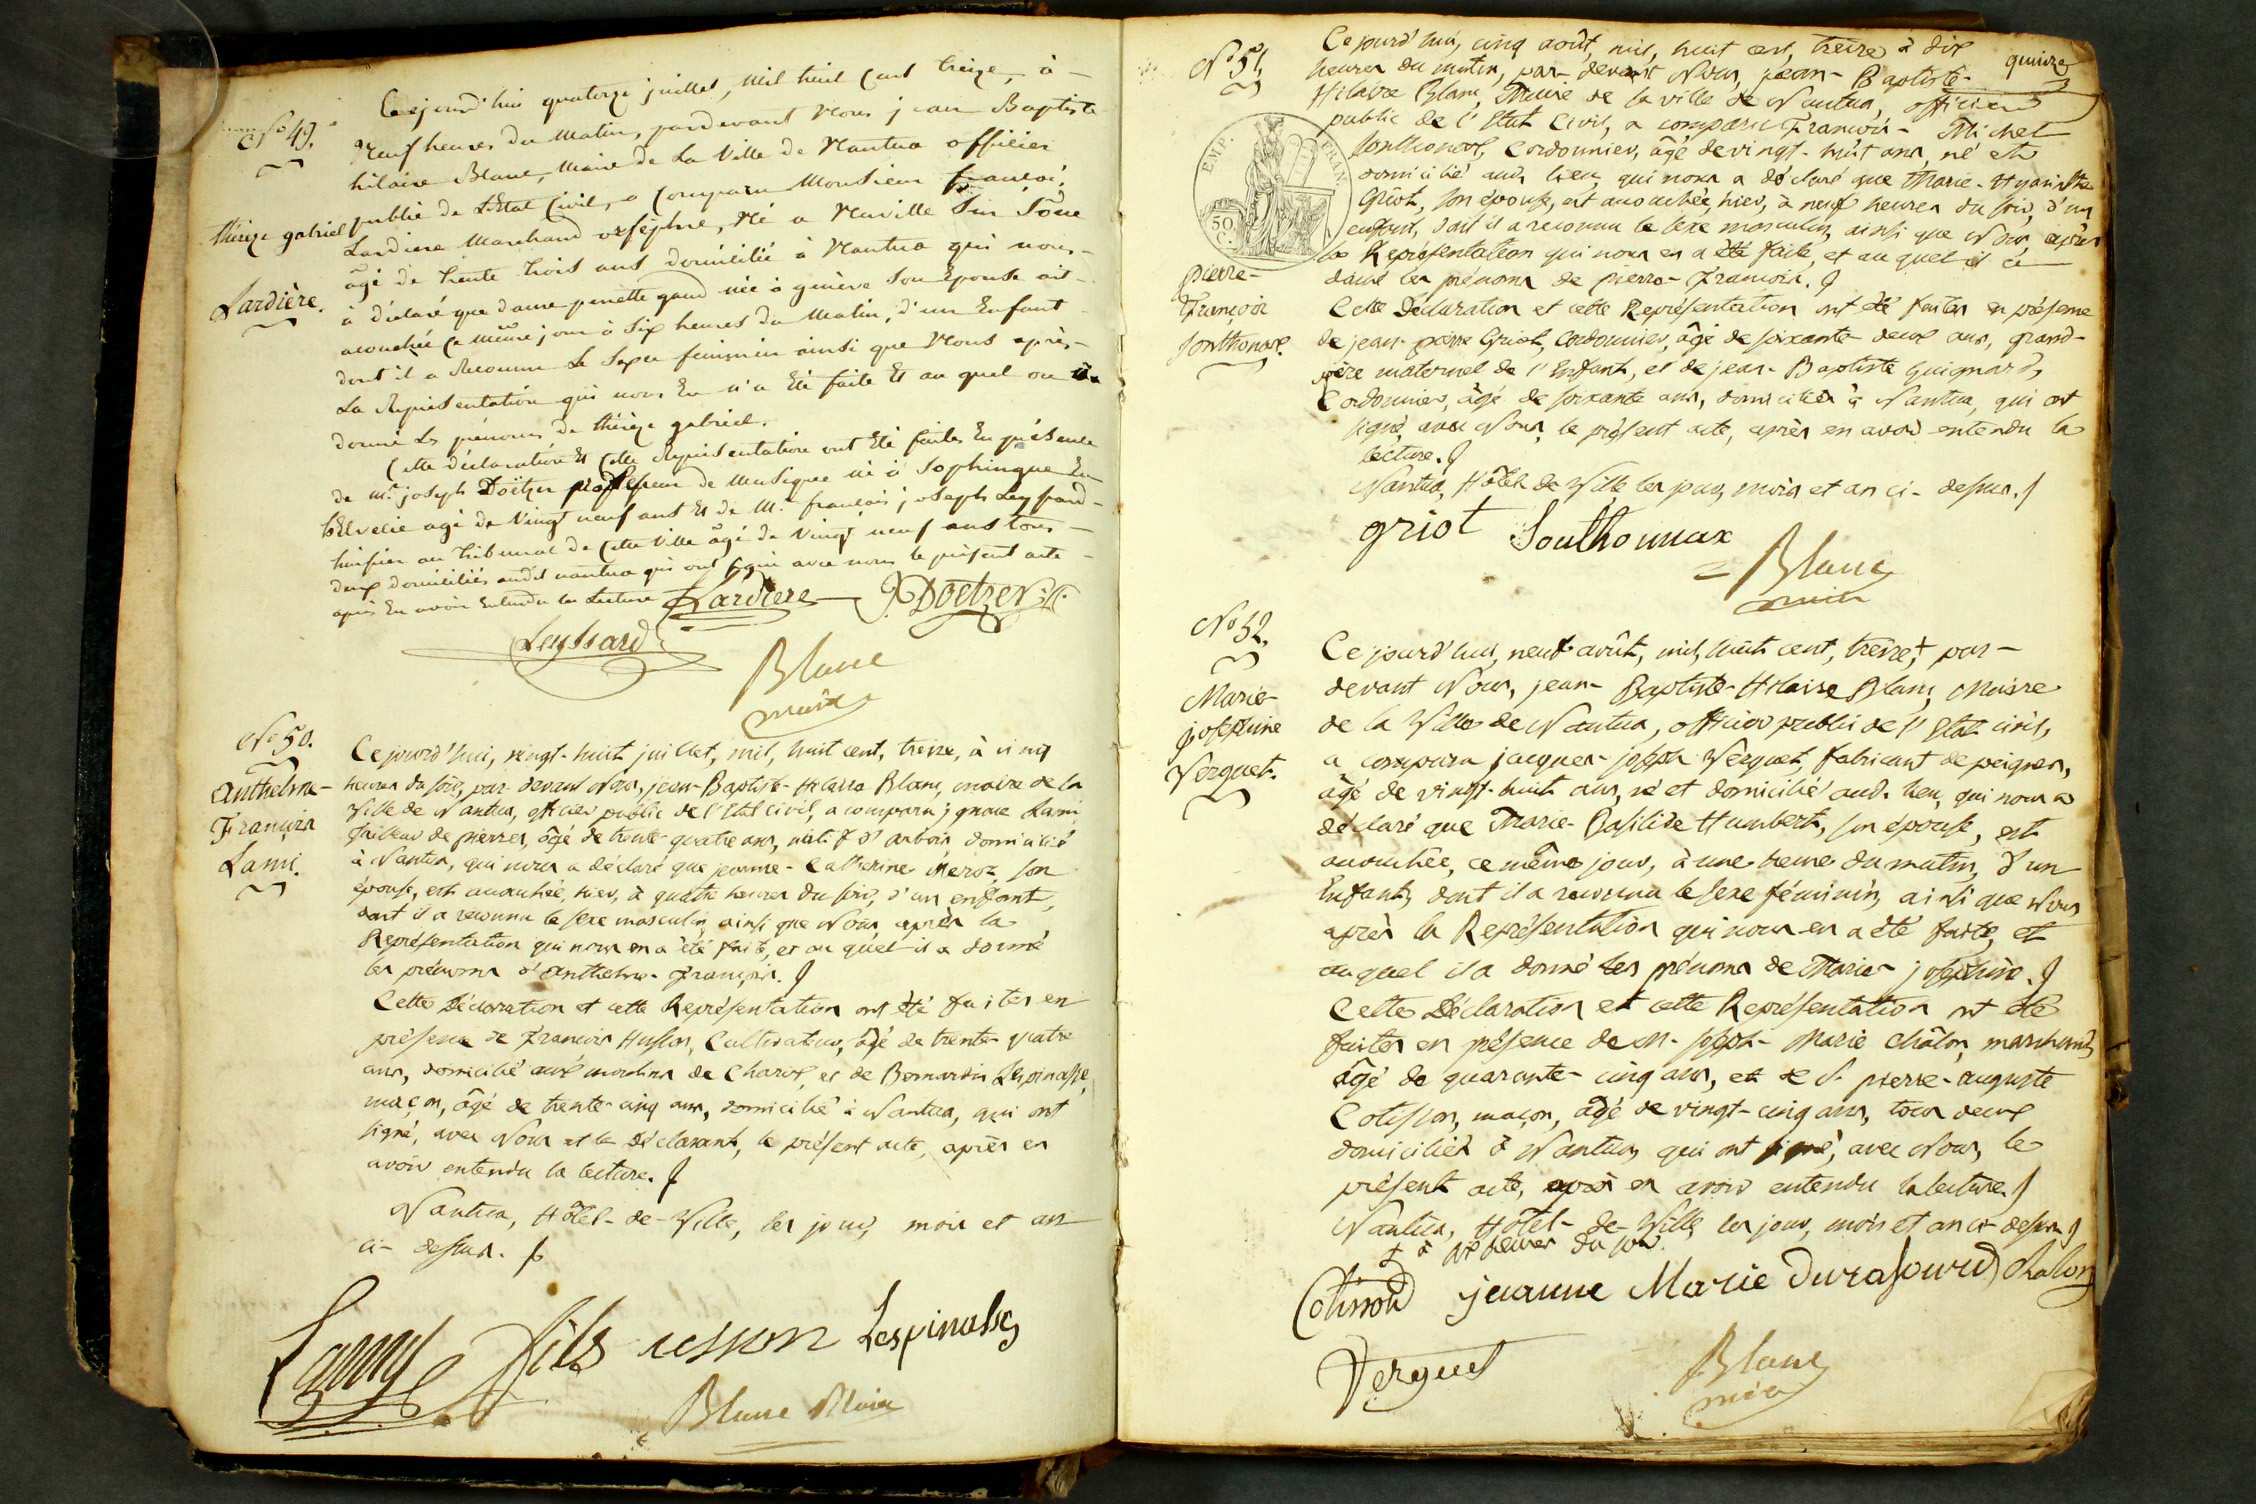 N.o 49.
thérèze gabriel
Lardière.
Cejourd'hui quatorze juillet, mil huit Cent treize, à
Neuf heures du Matin, pardevant Nous jean Baptiste
hilaire Blanc, Maire de La Ville de Nantua officier
public de L'Etat Civil, a Comparu Monsieur françois
Lardiere Marchand orféphre, Né a Neuville Sur Sône
âgé de trente trois ans domicilié à Nantua qui nous
à déclaré que dame penette gaud née à genève Son Epouse est
acouchée Ce même jour à Six heures du Matin, d'un Enfant
dont il a Reconnu Le Sexe feminin ainsi que Nous après
La Représentation qui nous En n'a Eté faite Et au quel on a
donné Les prénoms de thérèze gabriel.
Cette déclaration Et Cette Représentation ont Eté faites En présence
de mr. joseph Doëtzer professeur de Musique né à Sophingue En
helvécie agé de Vingt neuf ans Et de Mr. françois joseph Leyssard
huissier au tribunal de Cette Ville âgé de Vingt neuf ans tous
deux domiciliés audit nantua qui ont signé avec nous le présent acte
après En avoir Entendu la Lecture Lardiere J. Doëtzer
Leyssard
Blanc
maire
N.o 50.
Anthelme-
François
Lami.
Cejourd'hui, vingt-huit juillet, mil, huit cent, treize, à cinq
heures du soir, par-devant Nous, jean-Baptiste-Hilaire Blanc, maire de la
Ville de Nantua, officier public de l'Etat civil, a comparu ignace Lami
Tailleur de pierres, âgé de trente-quatre ans, natif d'arbois, domicilié
à Nantua, qui nous a déclaré que jeanne-Catherine son
épouse, est accouchée, hier, à quatre heures du soir, d'un enfant,
dont il a reconnu le sexe masculin, ainsi que Nous, après la
Représentation qui nous en a été faite, et au quel il a donné
les prénoms d'anthelme-François.
Cette Déclaration et cette Représentation ont été faites en
présence de François Husson, Cultivateur, âgé de trente-quatre
ans, domicilié aux moulins de Charix, et de Bernardin Lespinasse,
maçon, âgé de trente-cinq ans, domicilié à Nantua, qui ont
signé, avec Nous et le Déclarant, le présent acte, après en
avoir entendu la lecture.
Nantua, Hôtel-de-Ville, les jour, mois et an
ci-dessus.
Lamy fils usson Lespinasse
Blanc Maire
quinze
N.o 51.
EMP. FRAN.
50
C.
pierre-
François
Sonthonax.
Cejourd'hui, cinq août, mil, huit cent, treize à dix
heures du matin, par-devant Nous, jean-Baptiste-
Hilaire Blanc, Maire de la ville de Nantua, officier
public de l'Etat Civil, a comparu François-Michel
Sonthonax, Cordonnier, âgé de vingt-huit ans, né et
domicilié aud. lieu, qui nous a déclaré que Marie-Hyacinthe
Griot, son épouse, est accouchée, hier, à neuf heures du soir, d'un
enfant, dont il a reconnu le sexe masculin, ainsi que Nous après
la Représentation qui nous en a été faite, et au quel il a
donné les prénoms de pierre-François.
Cette Déclaration et cette Représentation ont été faites en présence
de jean-pierre Griot, Cordonnier, âgé de soixante-deux ans, grand-
père maternel de l'Enfant, et de jean-Baptiste Guignard,
Cordonnier, âgé de soixante ans, domiciliés à Nantua, qui ont
signé, avec Nous, le présent acte, après en avoir entendu la
lecture.
Nantua, Hôtel de Ville les jour, mois et an ci-dessus.
griot Sonthonnax
Blanc
maire
N.o 52.
Marie-
joséphine
Verguet.
Cejourd'hui, neuf août, mil, huit cent, treize, ‡ par-
devant Nous, jean-Baptiste-Hilaire Blanc, Maire
de la Ville de Nantua, officier public de l'Etat civil,
a comparu jacques-joseph Verguet, fabricant de peignes,
âgé de vingt-huit ans, né et domicilié aud. lieu, qui nous a
déclaré que Marie-Basilide Humbert, son épouse, est
accouchée, ce même jour, à une heure du matin, d'un
Enfant, dont il a reconnu le sexe féminin, ainsi que Nous
après la Représentation qui nous en a été faite, et
auquel il a donné les prénoms de Marie-joséphine.
Cette Déclaration et cette Représentation ont été
faites en présence de M. joseph-Marie Châlon, marchand,
âgé de quarante-cinq ans, et de S. pierre-auguste
Cotisson, maçon, âgé de vingt-cinq ans, tous deux
domiciliés à Nantua, qui ont signé, avec Nous, le
présent acte, après en avoir entendu la lecture.
Nantua, Hôtel-de-Ville, les jour, mois et an ci-dessus
‡ à heures du soir.
Cotisson jeanne Marie Durafourd Chalon
Verguet
Blanc
maire